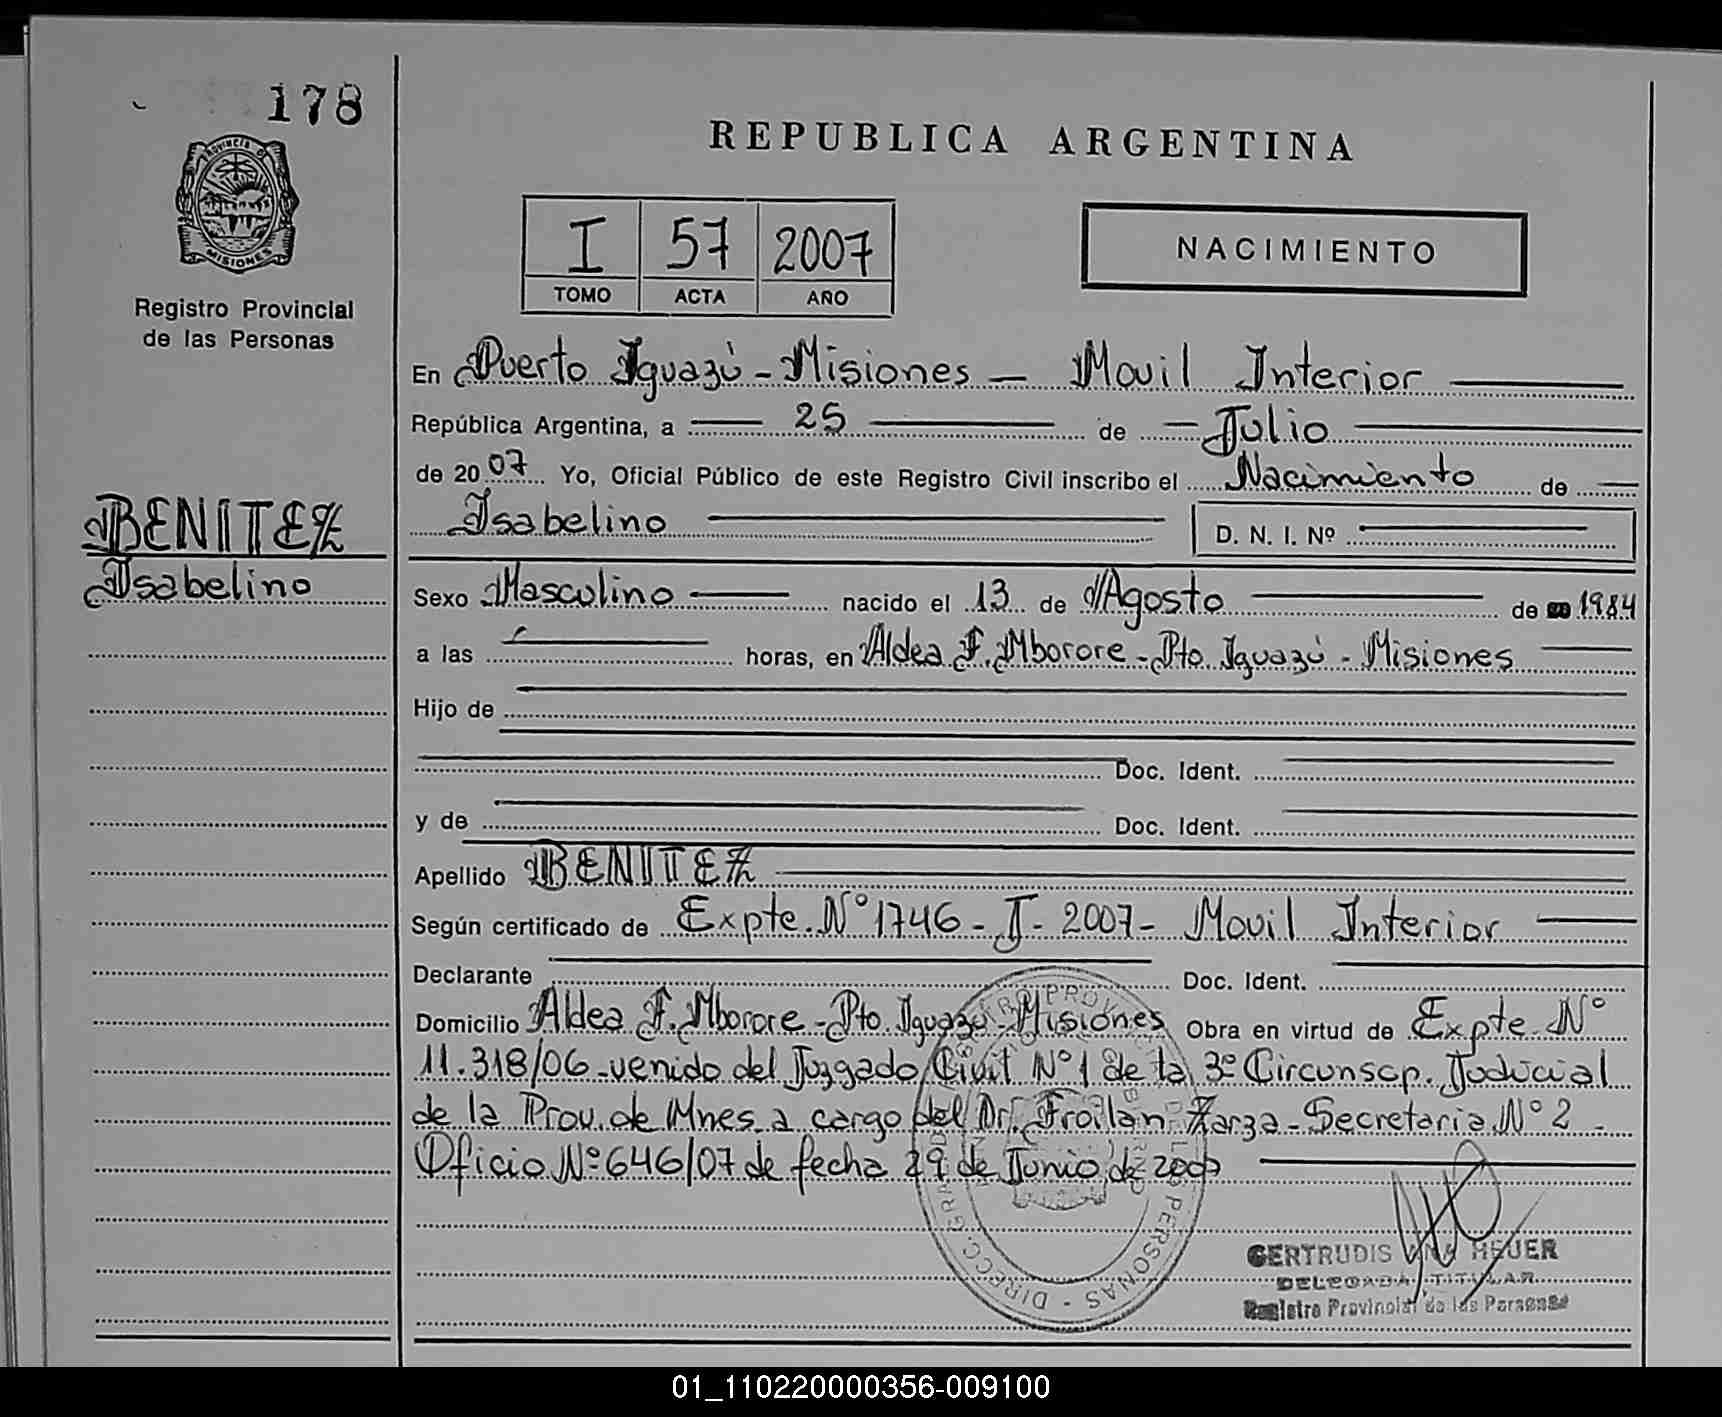 178
PROVINCIA D
MISIONES
Registro Provincial
de las Personas
BENITEZ
Isabelino
REPUBLICA ARGENTINA
I 57 2007
TOMO ACTA AÑO
NACIMIENTO
En Puerto Iguazú - Misiones - Movil Interior
República Argentina, a 25 de Julio
de 2007 Yo, Oficial Público de este Registro Civil inscribo el Nacimiento de
Isabelino D. N. I. Nº
Sexo Masculino nacido el 13 de Agosto de 1984
a las horas, en Aldea F. Mborore - Pto Iguazú - Misiones
Hijo de
Doc. Ident.
y de Doc. Ident.
Apellido BENITEZ
Según certificado de Expte. Nº 1746 - I - 2007 - Movil Interior
Declarante Doc. Ident.
Domicilio Aldea F. Mborore - Pto Iguazu - Misiones Obra en virtud de Expte Nº
11.318/06 - venido del Juzgado Civil Nº 1 de la 3º Circunscp. Judicial
de la Prov. de Mnes a cargo del Dr. Froilan Zarza - Secretaria Nº 2 -
Oficio Nº 646/07 de fecha 29 de Junio de
GERTRUDIS ANA HEUER
DELEGADA TITULAR
Registro Provincial de las Personas
01_110220000356-009100